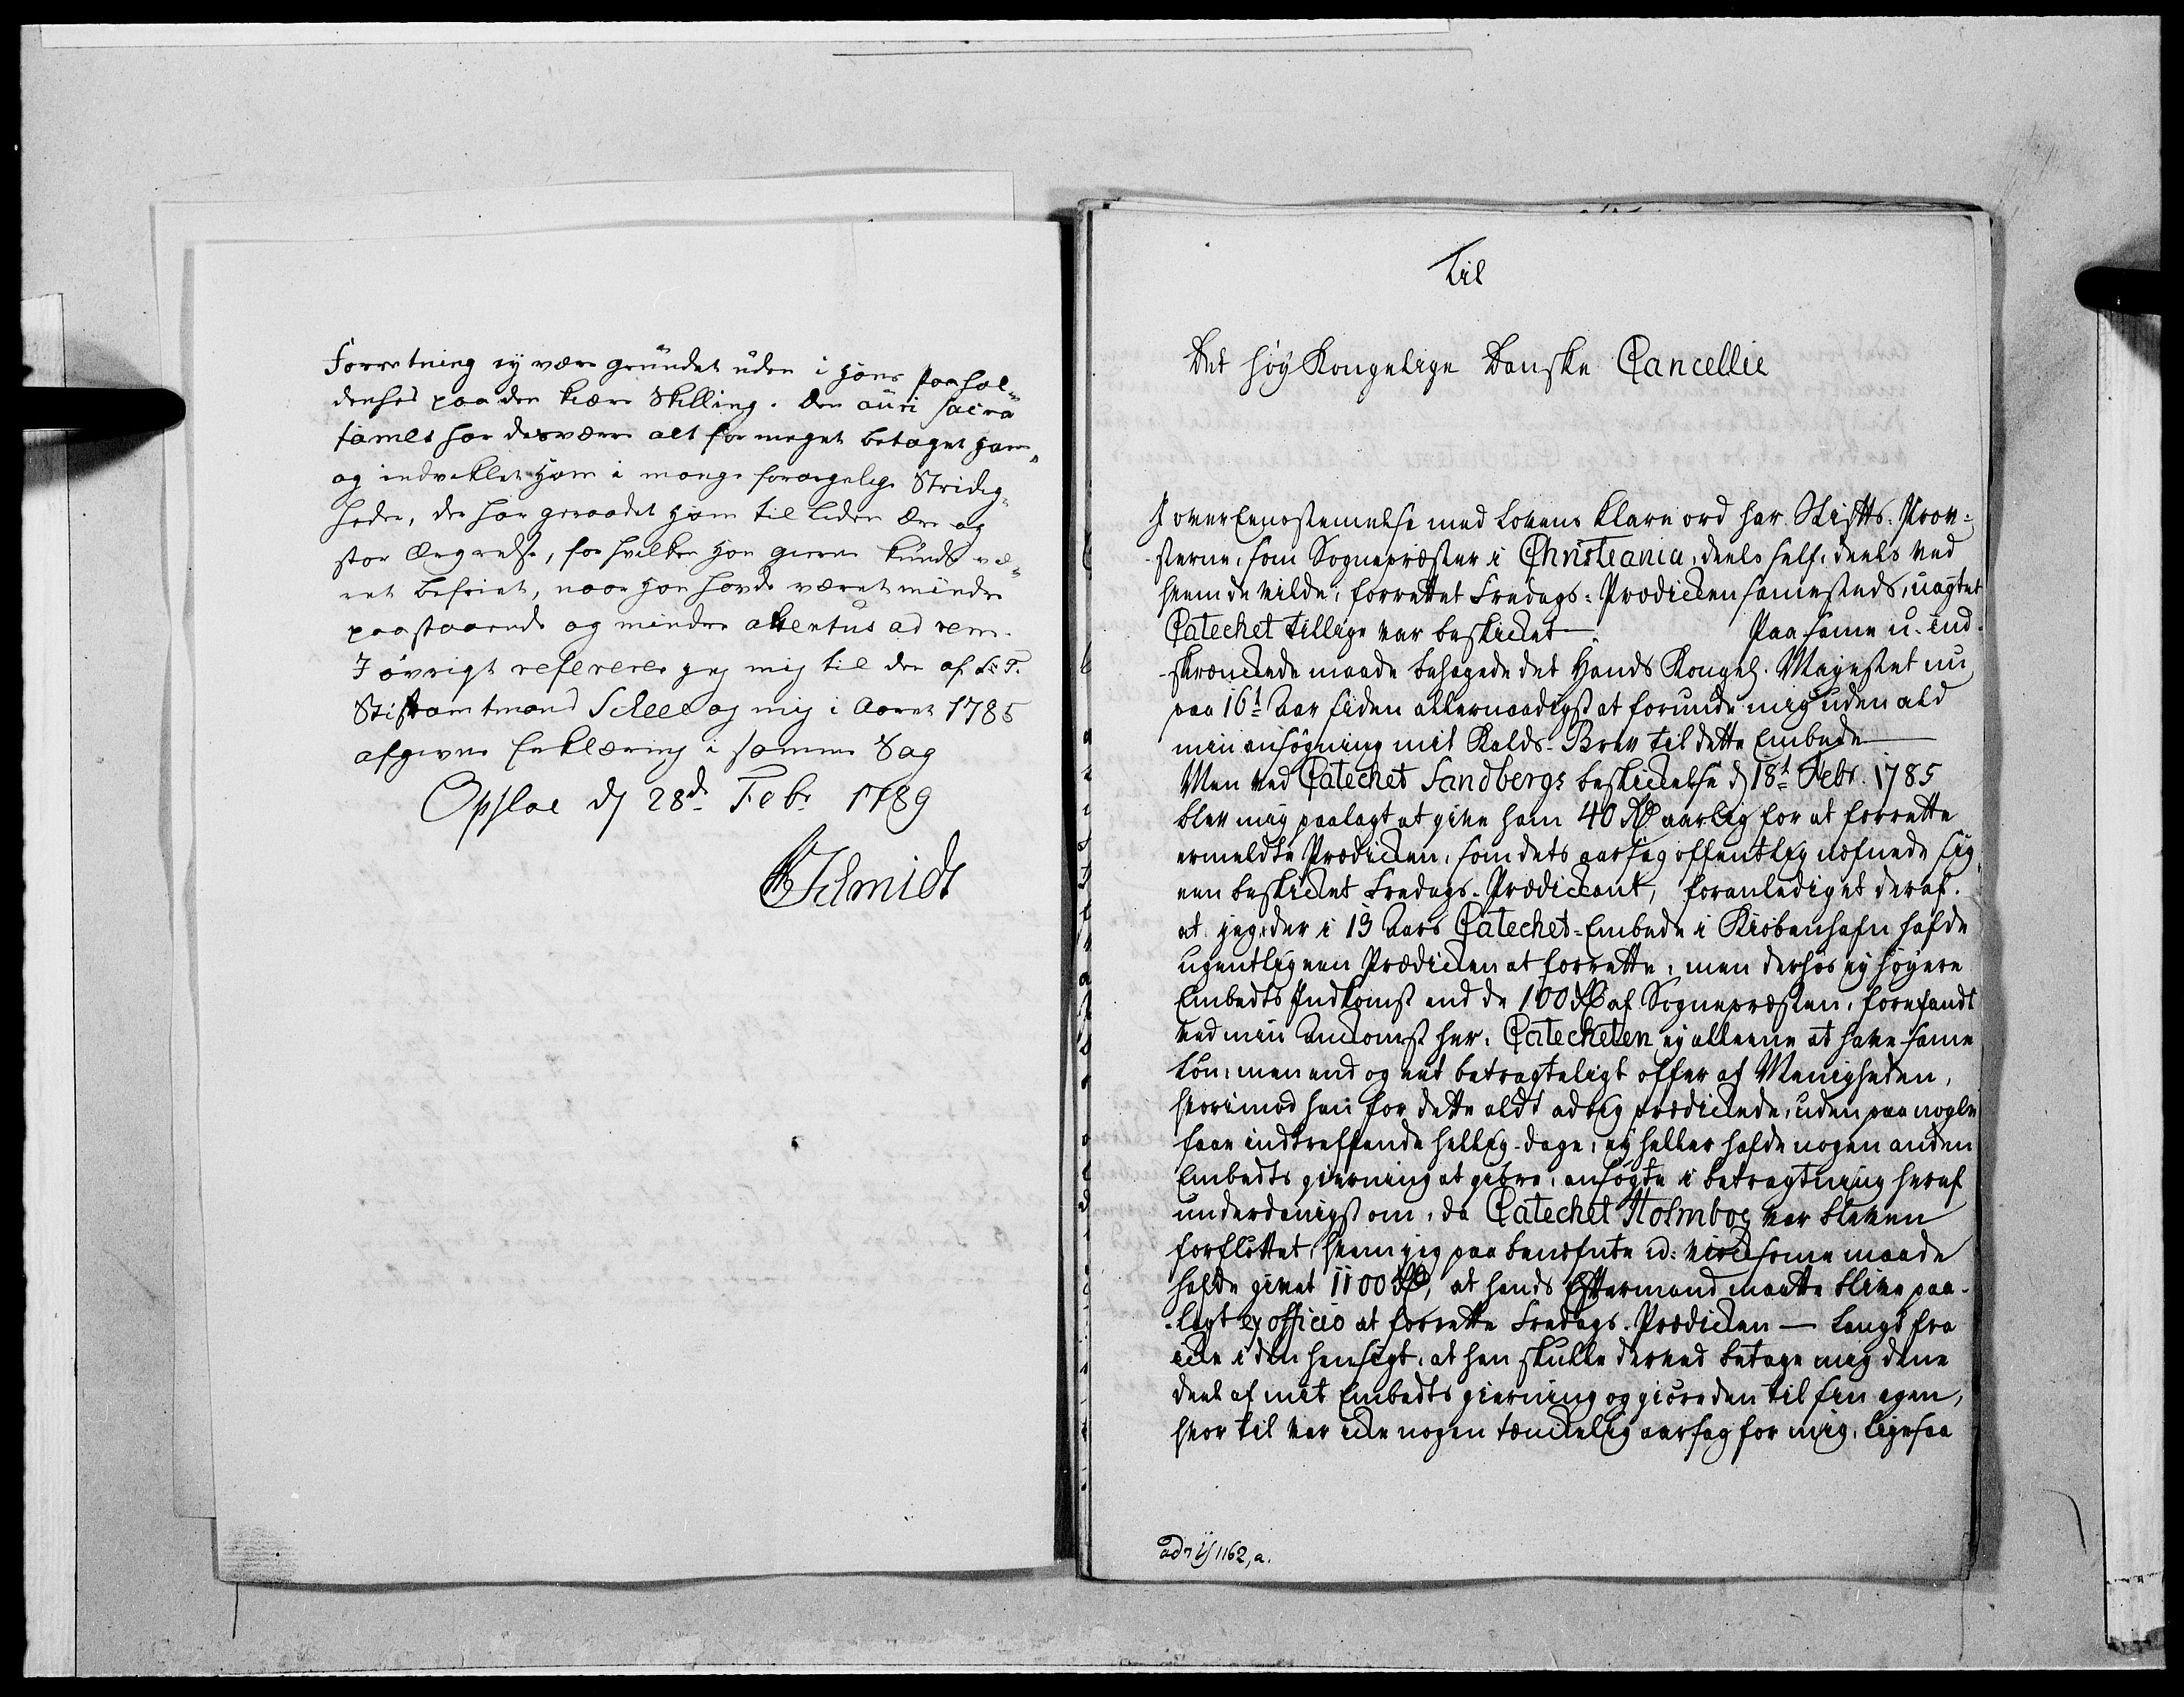 Forretning ej være grundet uden i Hans Paahol¬
denhed paa den kiære Skilling. Den auri sacra
fames har desværre alt for meget betaget Ham
og indviklet Ham i mange forargelige Stridig¬
heder, der har geraadet Ham til liden Ære og
stor Ærgrelse, for hvilken Han gierne kunde væ¬
ret befriet, naar Han havde været mindre
paastaaende og mindre attentus ad rem.
I øvrigt refererer jeg mig til den af S: T.
Stiftamtmand Scheel og mig i Aaret 1785
afgivne Erklæring i samme Sag
Opsloe d 28de Febr 1789
Schmidt
Til
Det høy Kongelige Danske Cancellie
J overEenstemelse med Lovens klare ord har Stifts-Prov¬
-sterne, som Sognepræster i Christiania, deels self, deels ved
hvem de vilde, forrettet Fredags-Prædicken samesteds, uagtet
Catechet tillige var beskicket. Paa same u-ind-
-skrænckede maade behagede det Hands Kongel. Mayestet nu
paa 16de Aar siden allernaadigst at forunde mig uden ald
min ansøgning mit Kalds-Brev til dette Embede
Men ved Catechet Sandbergs beskickelse d 18de Febr. 1785
blev mig paalagt at give ham 40 Rd aarlig for at forrette
ermeldte Prædicken, som dets aarsag offentlig nefnede sig
een beskicket Fredags-Prædicant, foranlediget deraf.
at jeg, der i 13 Aars Catechet-Embede i Kiøbenhafn hafde
ugentlig een Prædicken at forrette, men derhos ej høyere
Embeds Indkomst end de 100 Rd af Sognepræsten, forefandt
ved min Anckomst her, Catecheten ej alleene at have same
Løn, men end og eet betragteligt offer af Menigheden,
hvorimod han for dette aldt adlrig prædickede, uden paa nogle
faae indtreffende hellig-dage, ey heller hafde nogen anden
Embedts gierning at giøre, ansøgte i betragtning heraf
underdanigst om, da Catechet Holmboe var bleven
forfløttet, hvem jeg paa benefnte u-virksomme maade
hafde givet 1100 Rd, at hands Eftermand maatte blive paa-
-lagt ex officio at forrette Fredags-Prædicken — langt fra
icke i den hensigt, at han skulle derved betage mig denne
deel af mit Embedts gierning og giøre den til sin egen,
hvor til var icke nogen tænckelig aarsag for mig, ligesaa
1162, a.